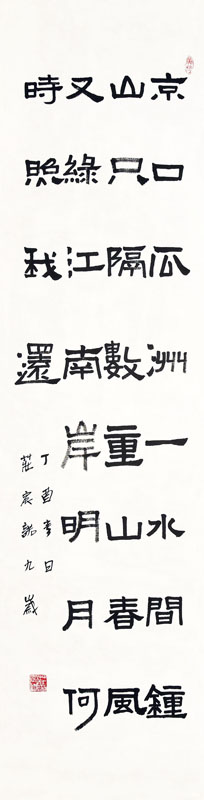 京口瓜洲一水間鐘
山只隔數重山春風
又綠江南岸明月何
時照我還
丁酉春日
莊宸九歲